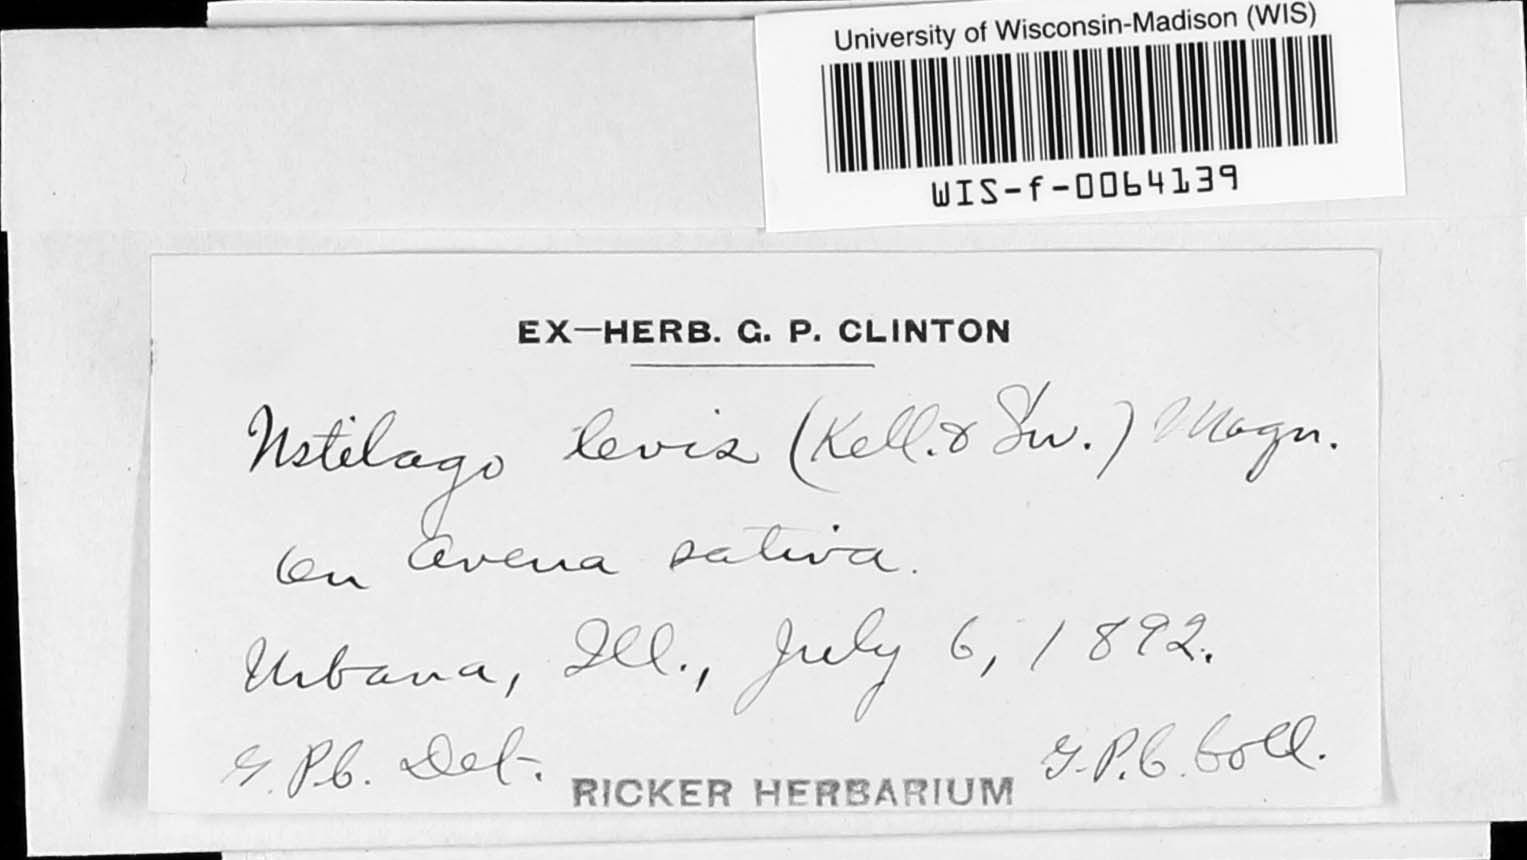 University of Wisconsin-Madison (WIS)
WIS-f-0064139
EX-HERB. G. P. CLINTON
Ustilago levis (Kell. & Sw.) Magn.
On Avena sativa.
Urbana, Ill., July 6, 1892.
G. P. C. Det. G. P. C. Coll.
RICKER HERBARIUM